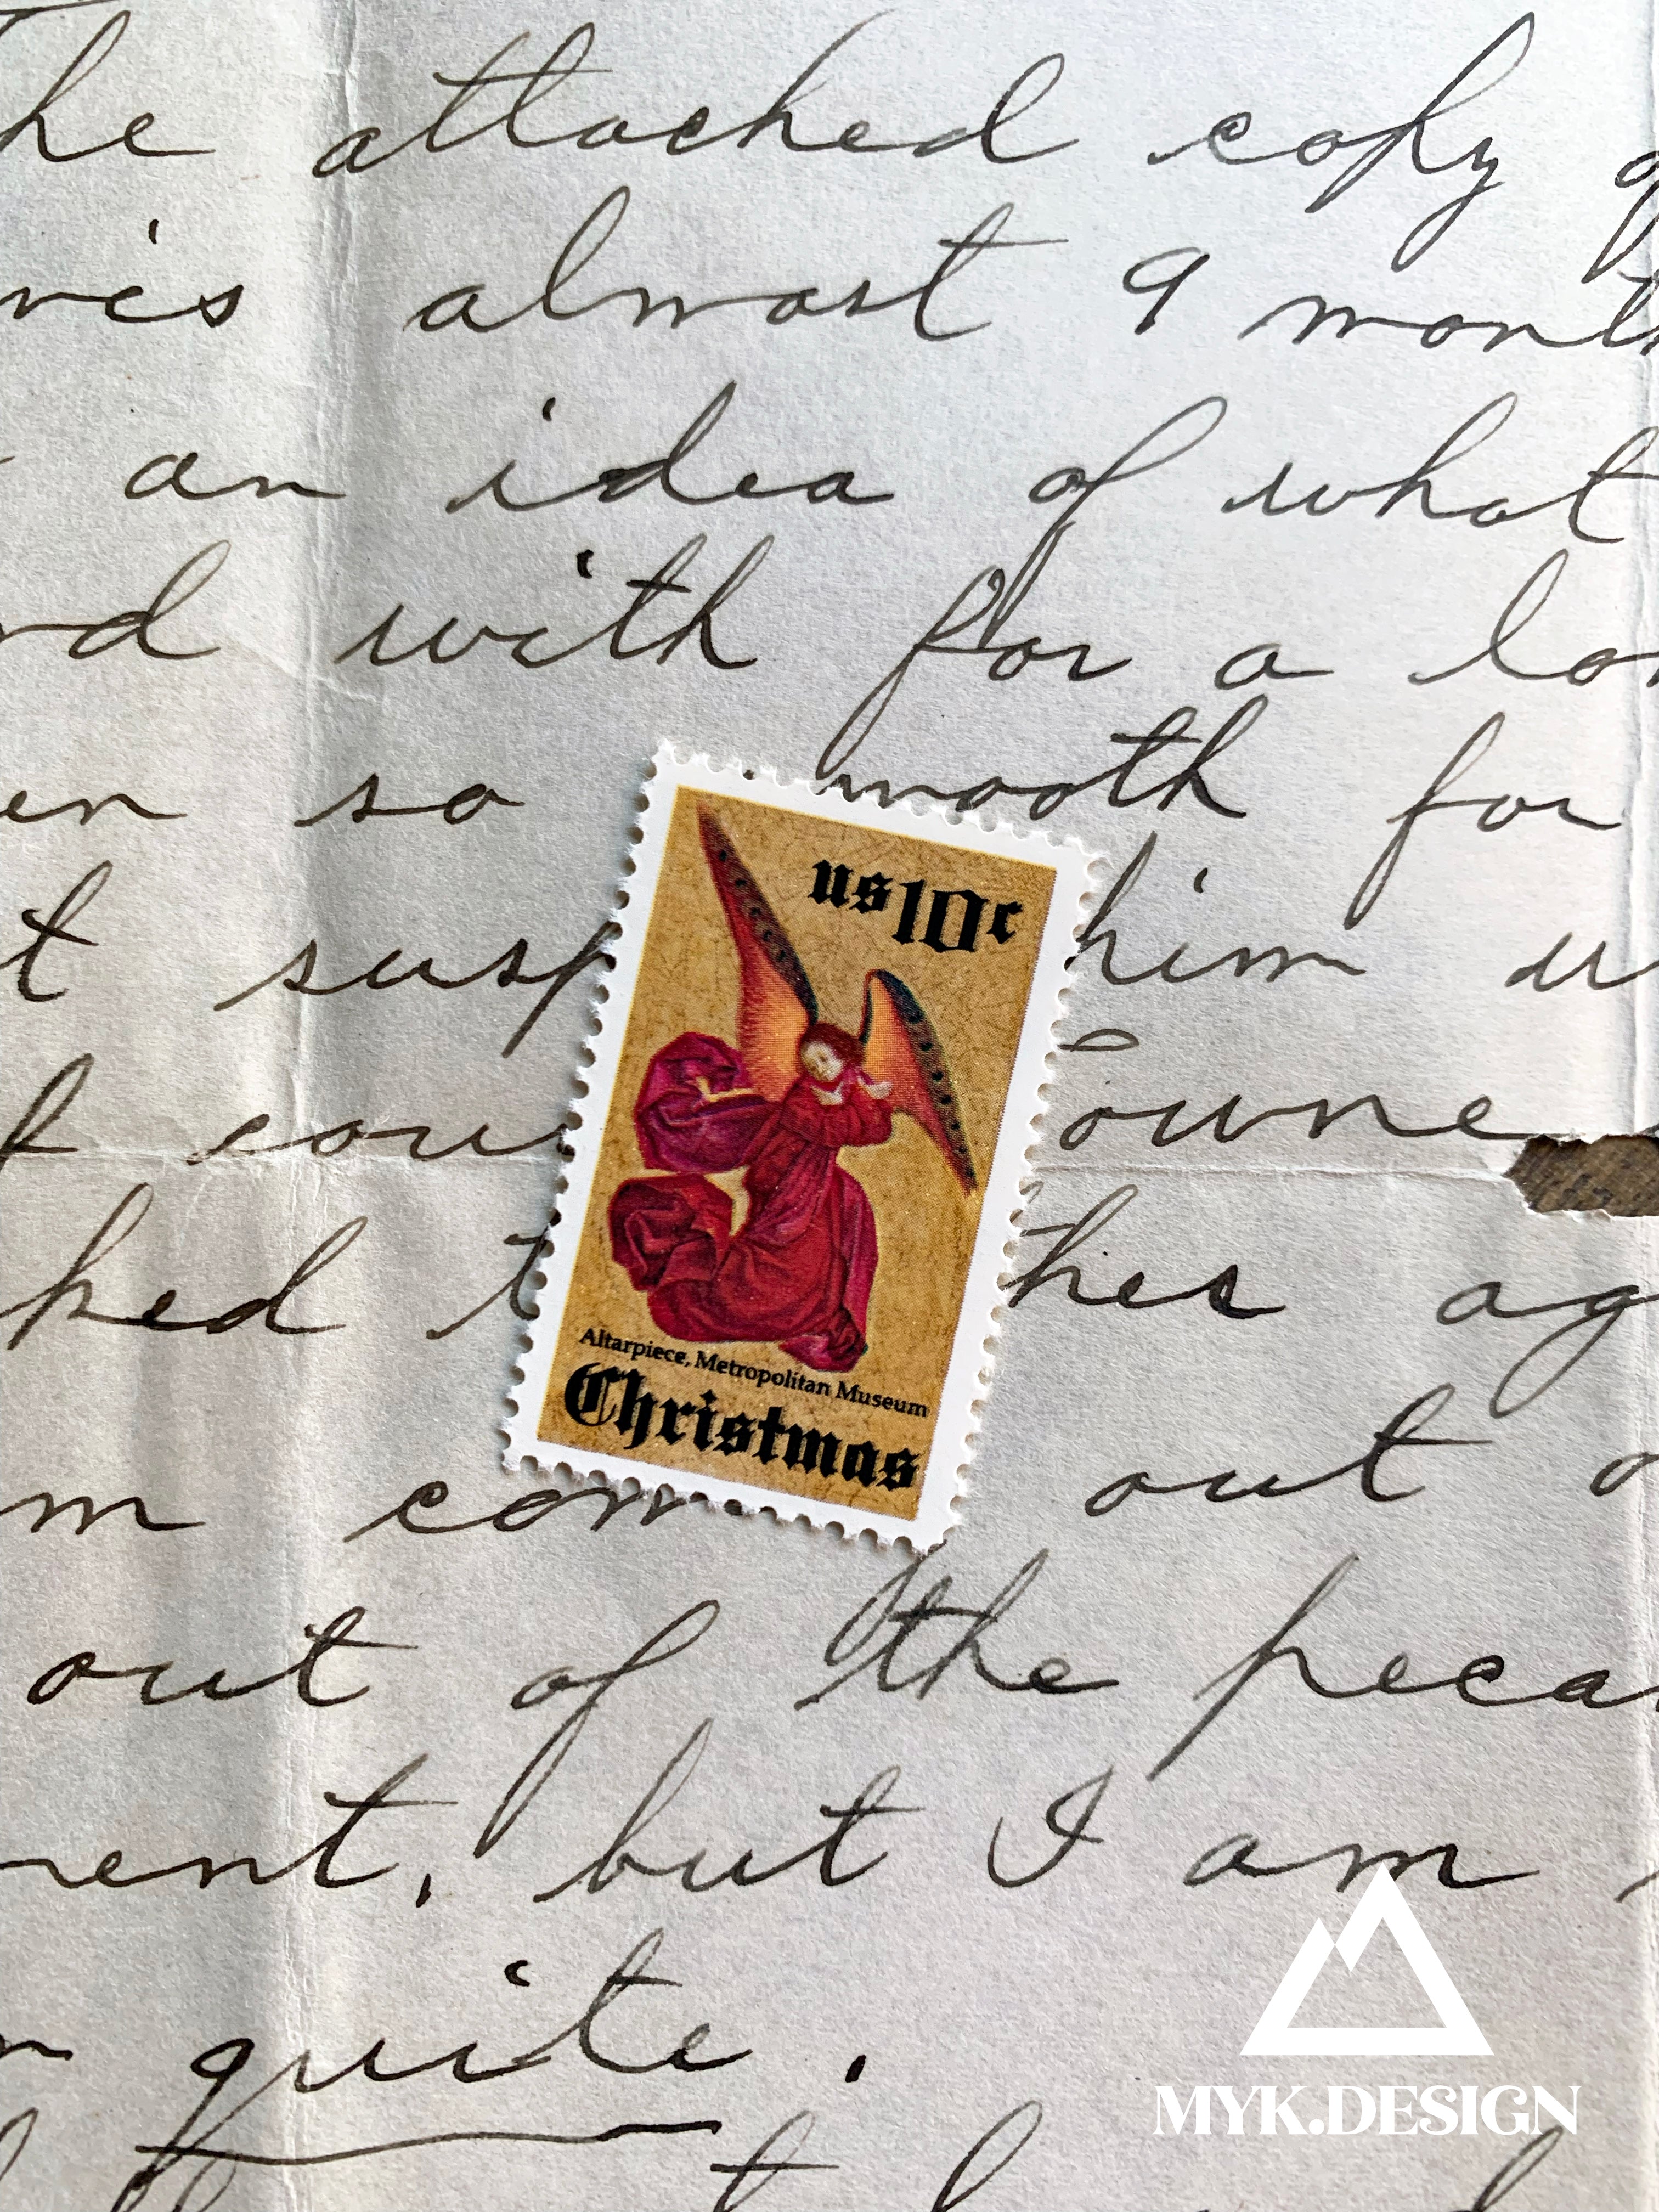 he attached copy of
almost 9 mont
an idea of what
with for a lo
en so mooth for
t susp him w
cou
ked t hes ag
m com out o
out of the peca
ment, but I am
quite.
us 10c
Altarpiece, Metropolitan Museum
Christmas
MYK.DESIGN